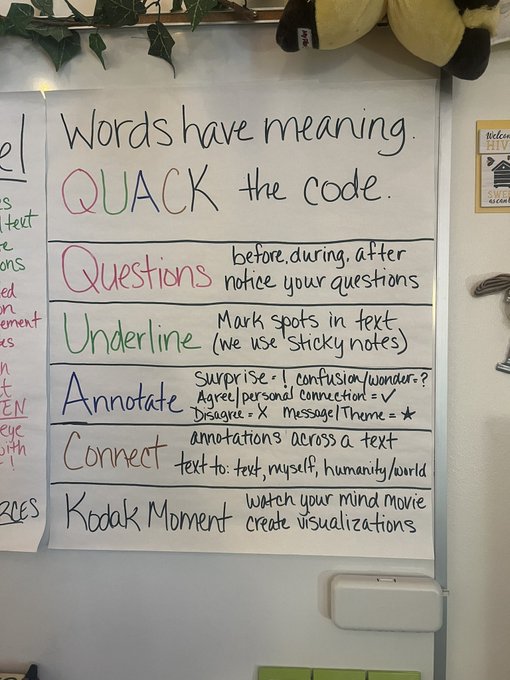 Words have meaning.
QUACK the code.
Questions before, during, after
notice your questions
Underline Mark spots in text
(we use sticky notes)
Annotate Surprise = ! confusion/wonder = ?
Agree/personal connection = ✓
Disagree = X message/Theme = ★
Connect annotations across a text
text to: text, myself, humanity/world
Kodak Moment watch your mind movie
create visualizations
text
EN
eye
with
!
RCES
Welcome
HIV
SWEE
as can b